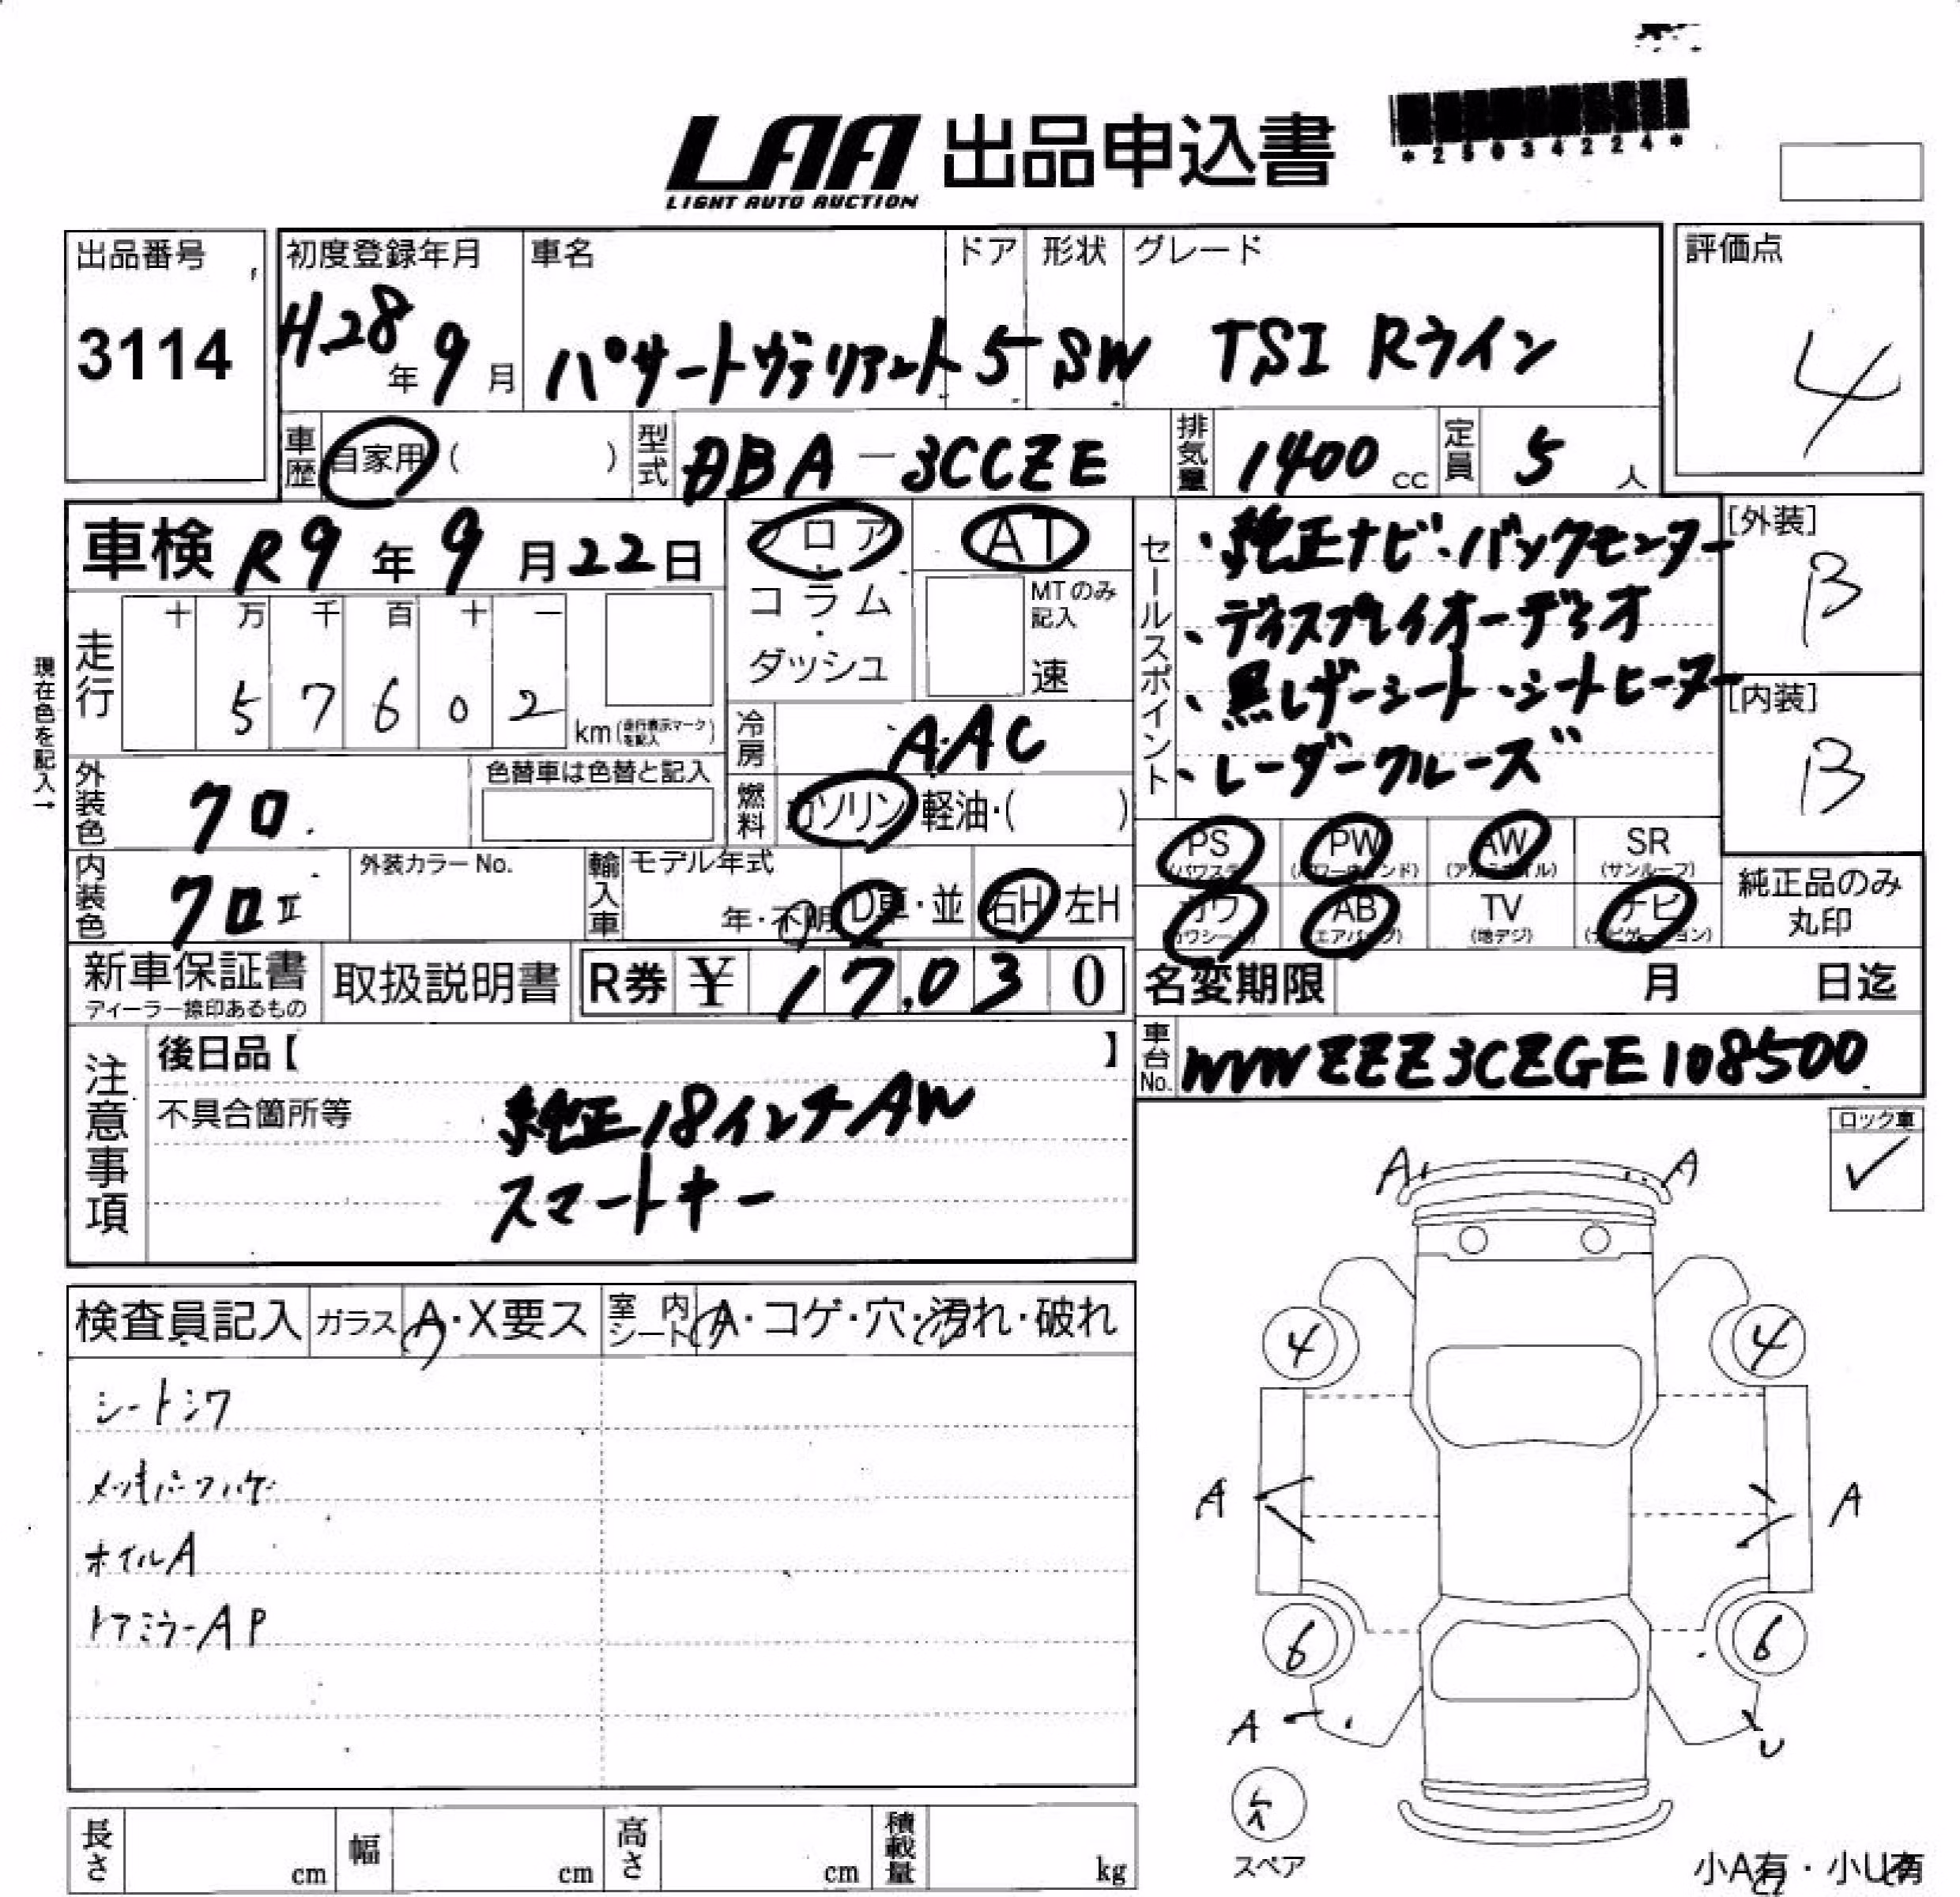 LAA 出品申込書
LIGHT AUTO AUCTION
*25034224*
出品番号
3114
初度登録年月 車名 ドア 形状 グレード
H28年9月 パサートヴァリアント 5 SW TSI Rライン
評価点
4
車歴 自家用 ( ) 型式 DBA-3CCZE 排気量 1400 cc 定員 5 人
車検 R9年9月22日
フロア・コラム・ダッシュ
AT
MTのみ記入
速
セールスポイント
・純正ナビ・バックモニター
・ディスプレイオーディオ
・黒レザーシート・シートヒーター
・レーダークルーズ
[外装]
B
[内装]
B
現在色を記入→
走行 十 万 千 百 十 一
57602 km (走行表示マークを記入)
冷房 AAC
外装色 クロ.
色替車は色替と記入
燃料 ガソリン・軽油・( )
内装色 クロⅡ
外装カラーNo.
輸入車 モデル年式
年・不明 D車・並 右H 左H
PS (パワステ) PW (パワーウィンド) AW (アルミホイル) SR (サンルーフ)
カワ (カワシート) AB (エアバッグ) TV (地デジ) ナビ (ナビゲーション)
純正品のみ丸印
新車保証書
ディーラー捺印あるもの
取扱説明書
R券 ¥ 17,030
名変期限 月 日迄
車台No. WVWZZZ3CZGE108500
注意事項
後日品【 】
不具合箇所等
純正18インチAW
スマートキー
ロック車
✓
検査員記入 ガラス A・X要ス 室内シート A・コゲ・穴・汚れ・破れ
シートシワ
メッキパーツハゲ
ホイルA
ドアミラーAP
A A
4 4
A A
6 6
A U
スペア
小A有・小U有
長さ cm 幅 cm 高さ cm 積載量 kg